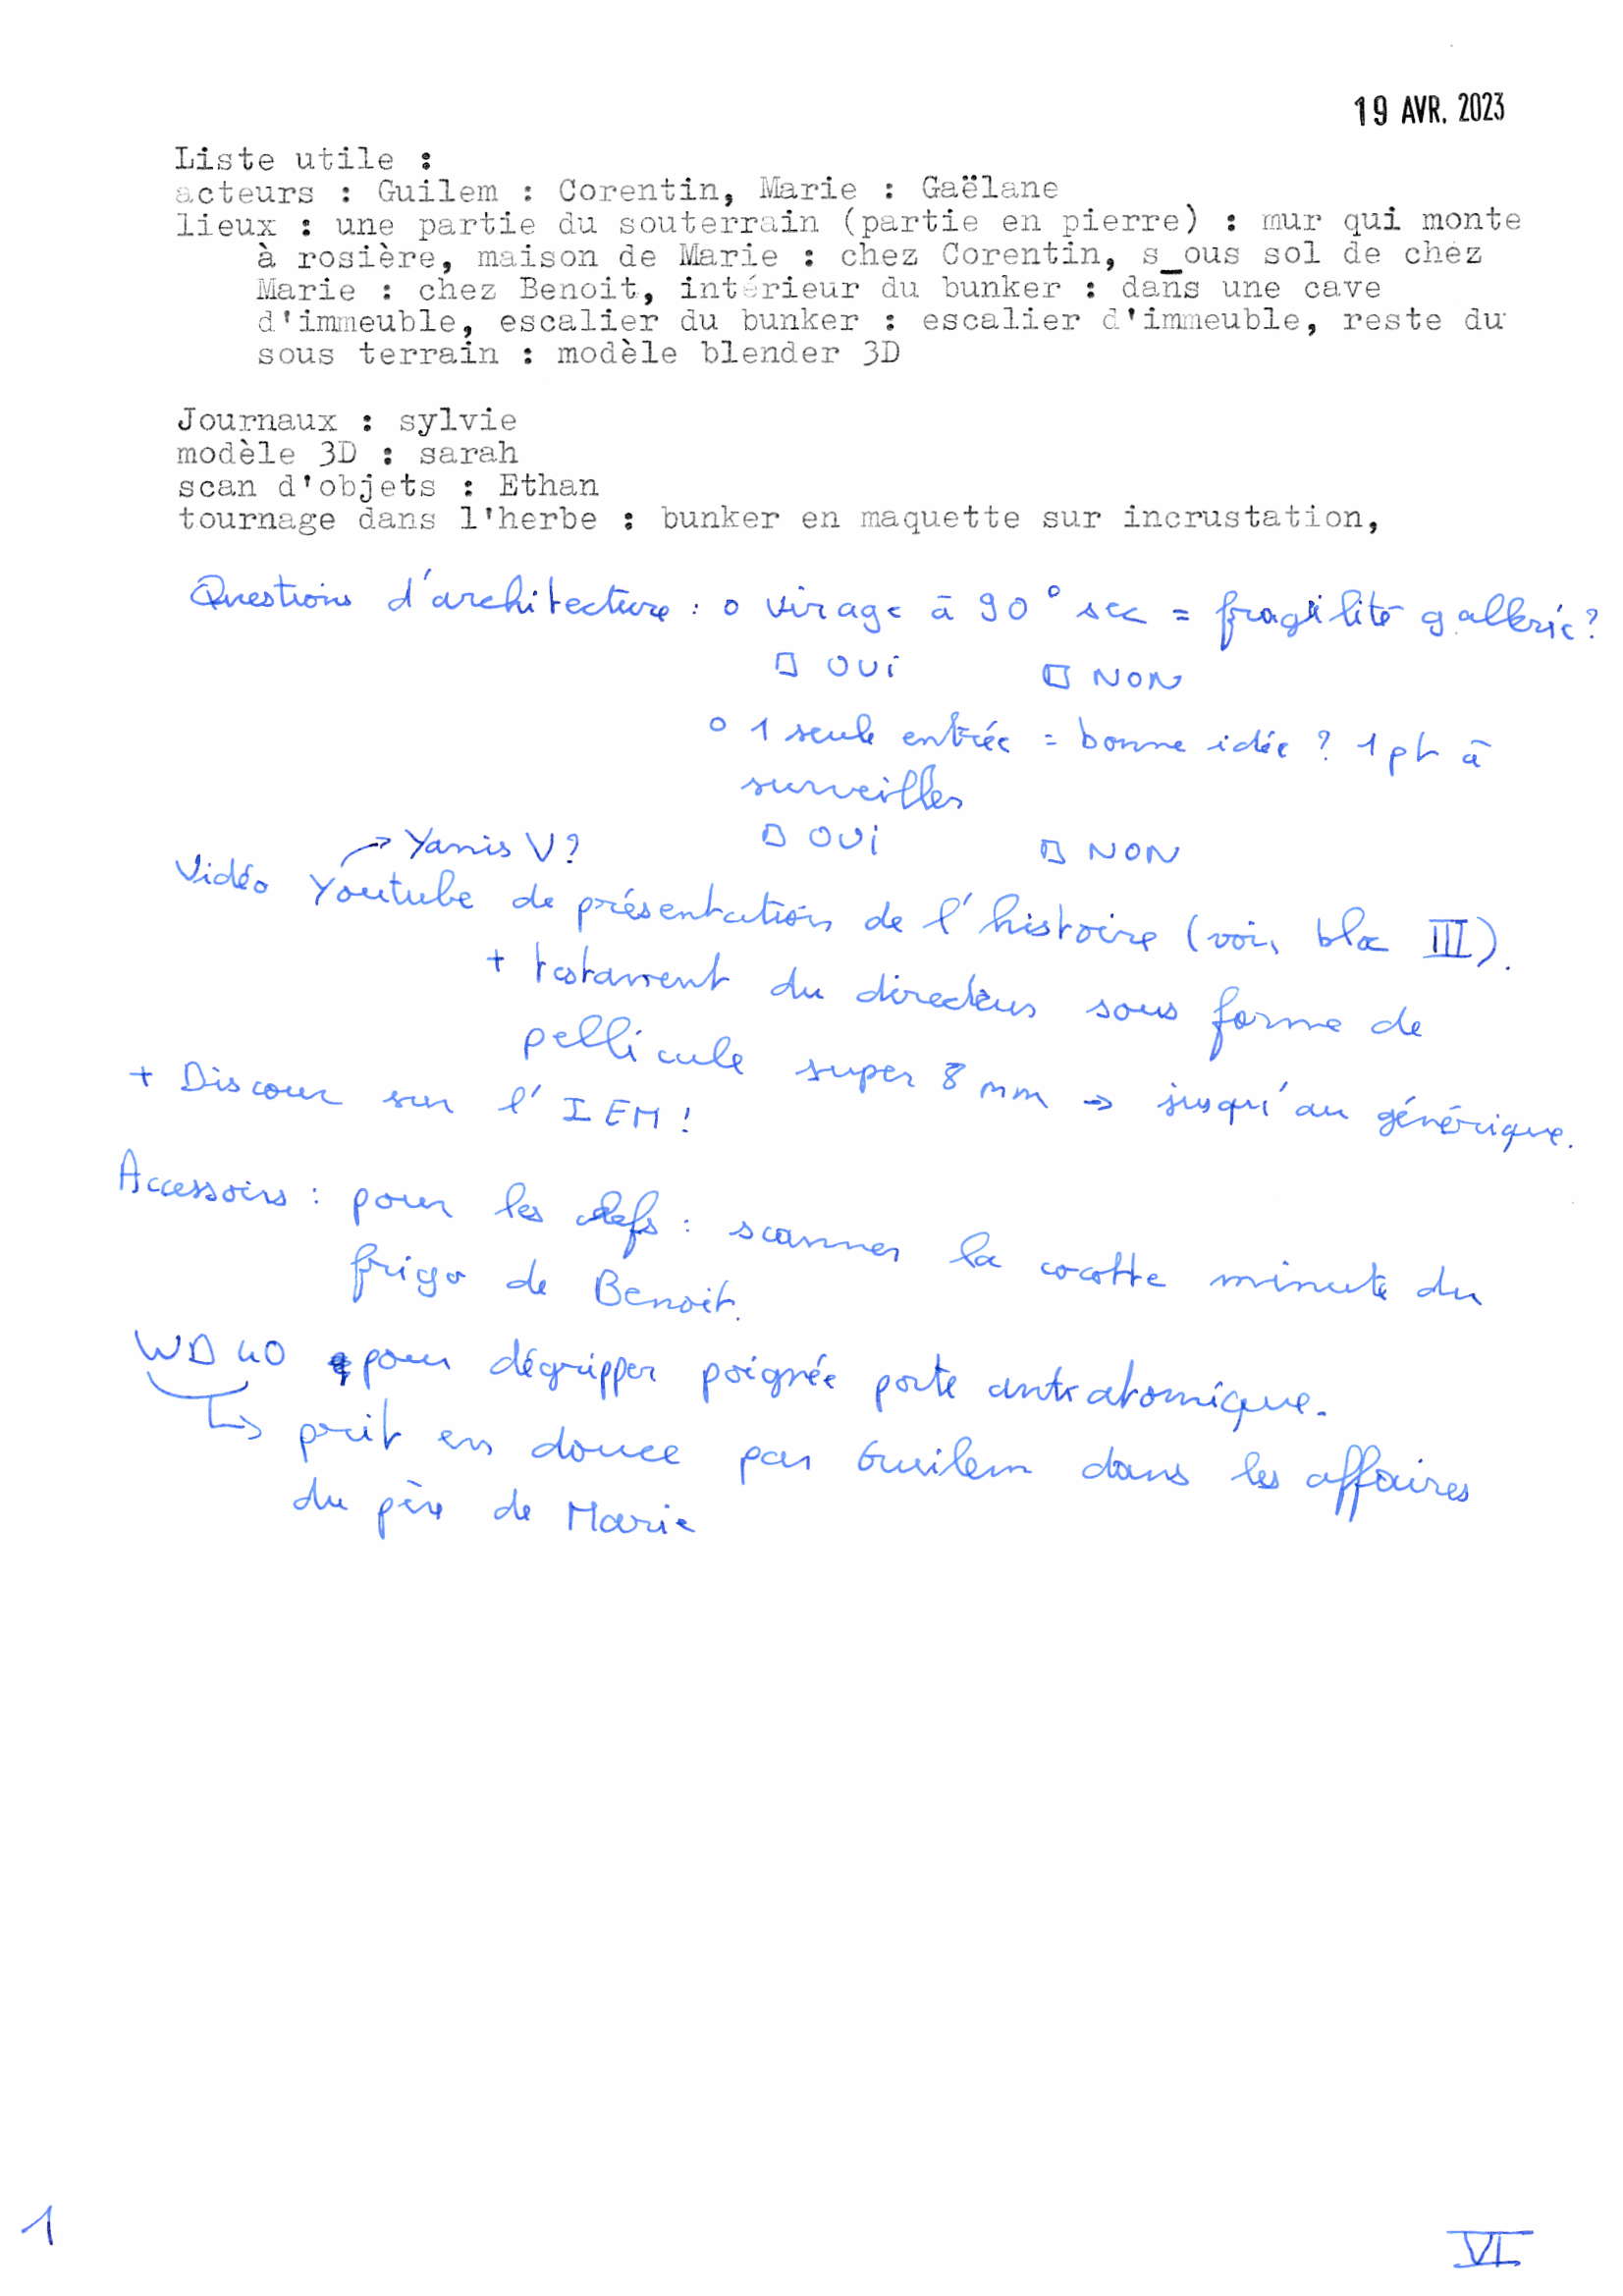 19 AVR. 2023
Liste utile :
acteurs : Guilem : Corentin, Marie : Gaëlane
lieux : une partie du souterrain (partie en pierre) : mur qui monte
à rosière, maison de Marie : chez Corentin, s_ous sol de chez
Marie : chez Benoit, intérieur du bunker : dans une cave
d'immeuble, escalier du bunker : escalier d'immeuble, reste du
sous terrain : modèle blender 3D
Journaux : sylvie
modèle 3D : sarah
scan d'objets : Ethan
tournage dans l'herbe : bunker en maquette sur incrustation,
Questions d'architecture : o virage à 90° sec = fragilité gallerie ?
□ OUi □ NON
o 1 seule entrée = bonne idée ? 1 pt à
surveiller
□ OUi □ NON
→ Yanis V ?
Vidéo Youtube de présentation de l'histoire (voir bloc III).
+ testament du directeur sous forme de
pellicule super 8 mm → jusqu'au générique.
+ Discour sur l'IEM !
Accessoirs : pour les clefs : scanner la cocotte minute du
frigo de Benoit.
WD 40 pour dégripper poignée porte antiatomique.
↳ prit en douce par Guilem dans les affaires
du père de Marie
1
VI